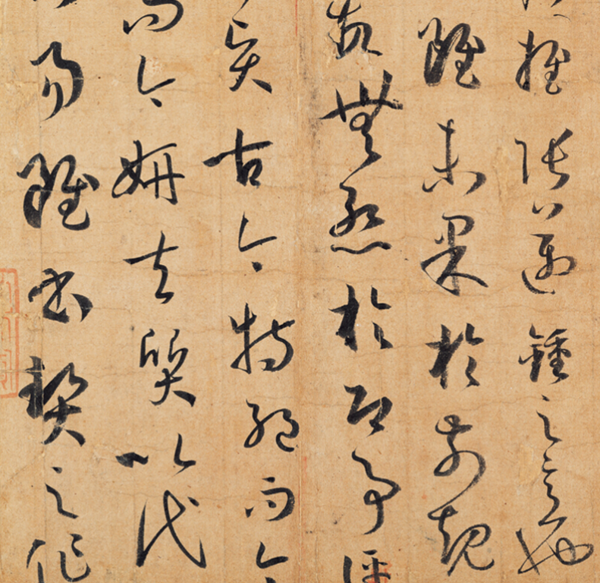 推張邁鍾之意也
雖未果於前規
故無慚於即事評
賢古今特絕而今
而今妍夫質以代
易雖書契之作